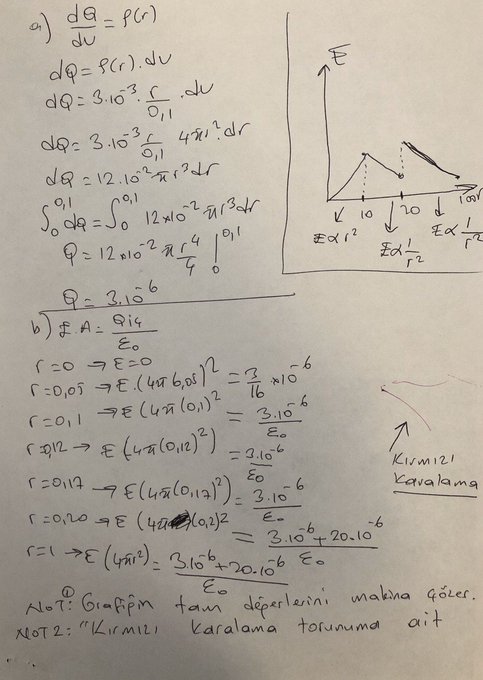 a) dQ/dv = ρ(r)
dQ = ρ(r).dv
dQ = 3.10⁻³. r/0,1 .dv
dQ = 3.10⁻³ r/0,1 4πr².dr
dQ = 12.10⁻² πr³dr
∫₀^0,1 dQ = ∫₀^0,1 12×10⁻² πr³dr
Q = 12×10⁻² π r⁴/4 |₀^0,1
Q = 3.10⁻⁶
E
10 20 100r
E∝r² E∝1/r² E∝1/r²
b) E.A = Qiç/ε₀
r=0 → E=0
r=0,05 → E.(4π0,05)² = 3/16 ×10⁻⁶
r=0,1 → E(4π(0,1)² = 3.10⁻⁶/ε₀
r=0,12 → E(4π(0,12)²) = 3.10⁻⁶/ε₀
r=0,17 → E(4π(0,17)²) = 3.10⁻⁶/ε₀
r=0,20 → E(4π(0,2)² = 3.10⁻⁶+20.10⁻⁶/ε₀
r=1 → E(4πr²) = 3.10⁻⁶+20.10⁻⁶/ε₀
Kırmızı
Karalama
NOT①: Grafiğin tam değerlerini makina çözer.
NOT2: "Kırmızı Karalama torunuma ait